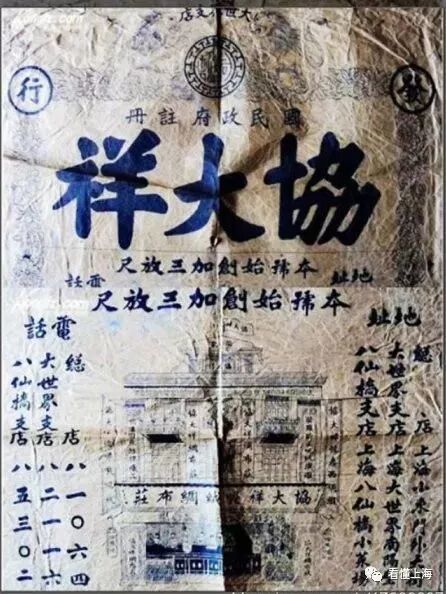 大世界支店
發行
國民政府註冊
協大祥
本號始創加三放尺
地址
電話
本號始創加三放尺
地址
總店 上海小東門外
大世界支店 上海大世界南
八仙橋支店 上海八仙橋小菜場
電話
總店 八一〇六四
大世界支店 八二一一六
八仙橋支店 八五三〇二
協大祥 綢布莊
看懂上海